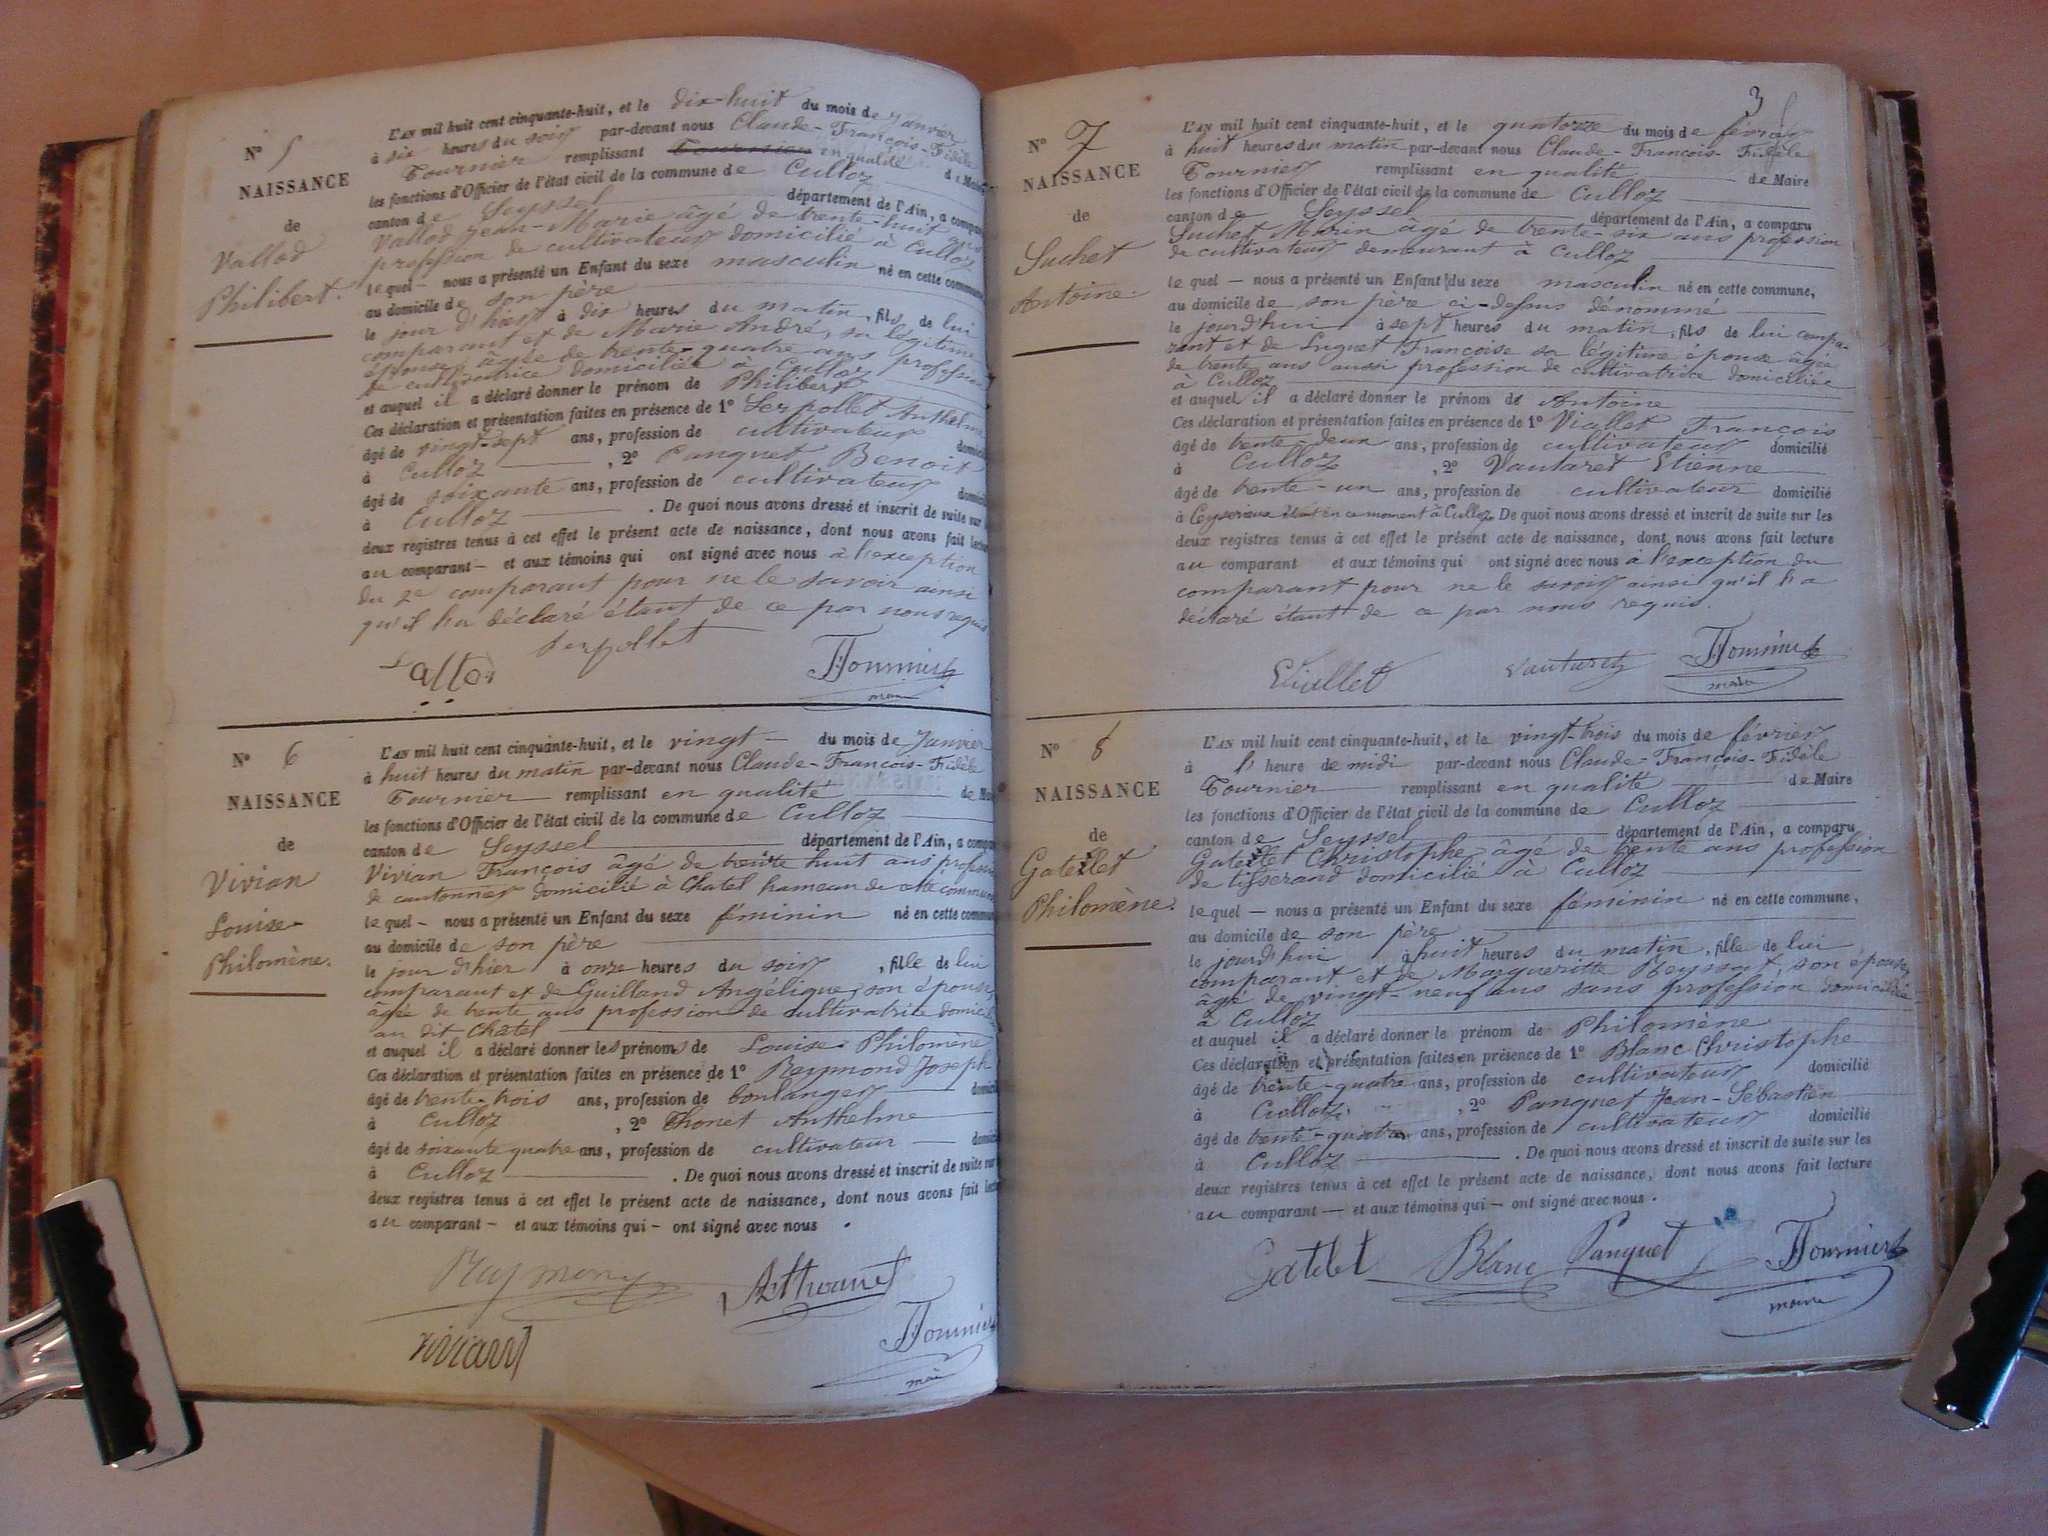 N° 5
NAISSANCE
de
Vallod
Philibert.
L'AN mil huit cent cinquante-huit, et le dix-huit du mois de Janvier
à six heures du soir par-devant nous Claude-François-Fidèle
Tournier remplissant en qualité de Maire
les fonctions d'Officier de l'état civil de la commune de Culloz
canton de Seyssel département de l'Ain, a comparu
Vallod Jean-Marie âgé de trente-huit ans
profession de cultivateur domicilié à Culloz
lequel - nous a présenté un Enfant du sexe masculin né en cette commune,
au domicile de son père
le jour d'hier à dix heures du matin, fils de lui
comparant et de Marie André, sa légitime
épouse, âgée de trente-quatre ans profession
de cultivatrice domiciliée à Culloz
et auquel il a déclaré donner le prénom de Philibert
Ces déclaration et présentation faites en présence de 1° Serpollet Anthelme
âgé de vingt-sept ans, profession de cultivateur domicilié
à Culloz , 2° Panguet Benoit
âgé de soixante ans, profession de cultivateur domicilié
à Culloz . De quoi nous avons dressé et inscrit de suite sur
deux registres tenus à cet effet le présent acte de naissance, dont nous avons fait lecture
au comparant - et aux témoins qui ont signé avec nous à l'exception
du 2e comparant pour ne le savoir ainsi
qu'il l'a déclaré étant de ce par nous requis
Vallod serpollet Tournier
maire
N° 6
NAISSANCE
de
Vivian
Louise-
Philomène.
L'AN mil huit cent cinquante-huit, et le vingt - du mois de Janvier
à huit heures du matin par-devant nous Claude-François-Fidèle
Tournier remplissant en qualité de Maire
les fonctions d'Officier de l'état civil de la commune de Culloz
canton de Seyssel département de l'Ain, a comparu
Vivian François âgé de trente huit ans profession
de cantonnier domicilié à Chatel hameau de cette commune
lequel - nous a présenté un Enfant du sexe féminin né en cette commune
au domicile de son père
le jour d'hier à onze heures du soir , fille de lui
comparant et de Guilland Angélique, son épouse,
âgée de trente ans profession de cultivatrice domiciliée
au dit Chatel
et auquel il a déclaré donner les prénoms de Louise Philomène
Ces déclaration et présentation faites en présence de 1° Raymond Joseph
âgé de trente-trois ans, profession de boulanger domicilié
à Culloz , 2° Thonet Anthelme
âgé de soixante quatre ans, profession de cultivateur - domicilié
à Culloz . De quoi nous avons dressé et inscrit de suite sur
deux registres tenus à cet effet le présent acte de naissance, dont nous avons fait lecture
au comparant - et aux témoins qui - ont signé avec nous .
Raymond
vivian
Tournier
maire
3
N° 7
NAISSANCE
de
Suchet
Antoine.
L'AN mil huit cent cinquante-huit, et le quatorze du mois de février
à huit heures du matin par-devant nous Claude-François-Fidèle
Tournier remplissant en qualité de Maire
les fonctions d'Officier de l'état civil de la commune de Culloz
canton de Seyssel département de l'Ain, a comparu
Suchet Marin âgé de trente-six ans profession
de cultivateur demeurant à Culloz
lequel - nous a présenté un Enfant du sexe masculin né en cette commune,
au domicile de son père ci-dessus dénommé
le jourd'hui à sept heures du matin, fils de lui compa-
rant et de Luguet Françoise sa légitime épouse âgée
de trente ans aussi profession de cultivatrice domiciliée
à Culloz
et auquel il a déclaré donner le prénom de Antoine
Ces déclaration et présentation faites en présence de 1° Viallet François
âgé de trente-deux ans, profession de cultivateur domicilié
à Culloz , 2° Vautaret Etienne
âgé de trente-un ans, profession de cultivateur domicilié
à Ceyserieux étant en ce moment à Culloz De quoi nous avons dressé et inscrit de suite sur les
deux registres tenus à cet effet le présent acte de naissance, dont nous avons fait lecture
au comparant et aux témoins qui ont signé avec nous à l'exception du
comparant pour ne le savoir ainsi qu'il l'a
déclaré étant de ce par nous requis.
Viallet Vautaret Tournier
maire
N° 8
NAISSANCE
de
Gatellet
Philomène.
L'AN mil huit cent cinquante-huit, et le vingt-trois du mois de février
à l' heure de midi par-devant nous Claude-François-Fidèle
Tournier remplissant en qualité de Maire
les fonctions d'Officier de l'état civil de la commune de Culloz
canton de Seyssel département de l'Ain, a comparu
Gatellet Christophe âgé de trente ans profession
de tisserand domicilié à Culloz
lequel - nous a présenté un Enfant du sexe féminin né en cette commune,
au domicile de son père
le jourd'hui à huit heures du matin, fille de lui
comparant et de Margueritte Reyssat, son épouse,
âgé de vingt-neuf ans sans profession domiciliée
à Culloz
et auquel il a déclaré donner le prénom de Philomène
Ces déclaration et présentation faites en présence de 1° Blanc Christophe
âgé de trente-quatre ans, profession de cultivateur domicilié
à Culloz , 2° Panguet Jean-Sébastien
âgé de trente-quatre ans, profession de cultivateur domicilié
à Culloz . De quoi nous avons dressé et inscrit de suite sur les
deux registres tenus à cet effet le présent acte de naissance, dont nous avons fait lecture
au comparant - et aux témoins qui - ont signé avec nous .
Gatelet Blanc Panguet Tournier
maire